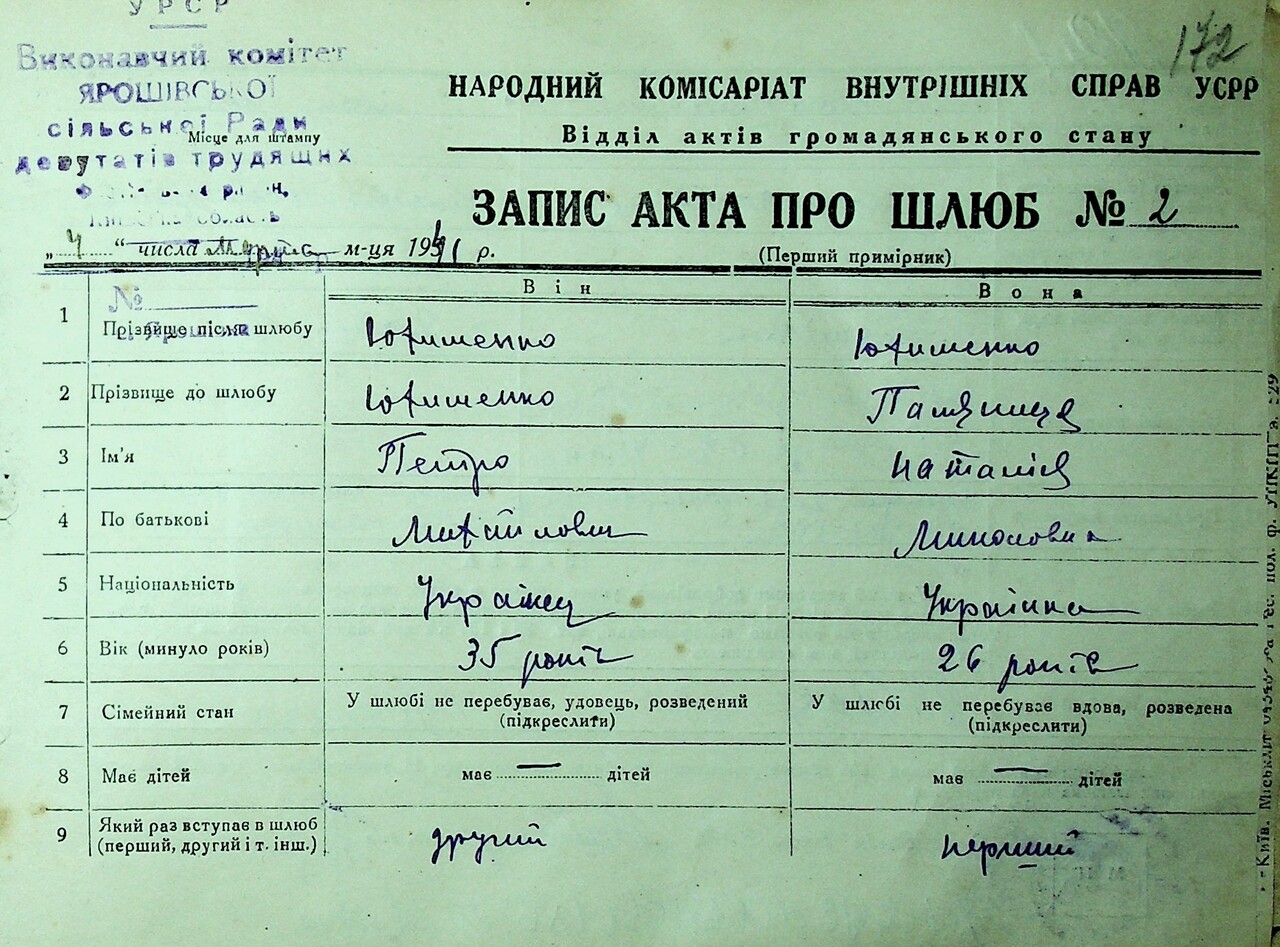 УРСР
172
Виконавчий комітет
ЯРОШІВСЬКОЇ
сільської Ради
депутатів трудящих
область
Місце для штампу
НАРОДНИЙ КОМІСАРІАТ ВНУТРІШНІХ СПРАВ УСРР
Відділ актів громадянського стану
ЗАПИС АКТА ПРО ШЛЮБ № 2
(Перший примірник)
„ 4 “ числа м-ця 1941 р.
№
Він Вона
1 Прізвище після шлюбу Юхименко Юхименко
2 Прізвище до шлюбу Юхименко Паляниця
3 Ім'я Петро Наталія
4 По батькові Михайлович Миколовна
5 Національність Українец Українка
6 Вік (минуло років) 35 років 26 років
7 Сімейний стан У шлюбі не перебуває, удовець, розведений (підкреслити) У шлюбі не перебуває вдова, розведена (підкреслити)
8 Має дітей має — дітей має — дітей
9 Який раз вступає в шлюб (перший, другий і т. інш.) другий перший